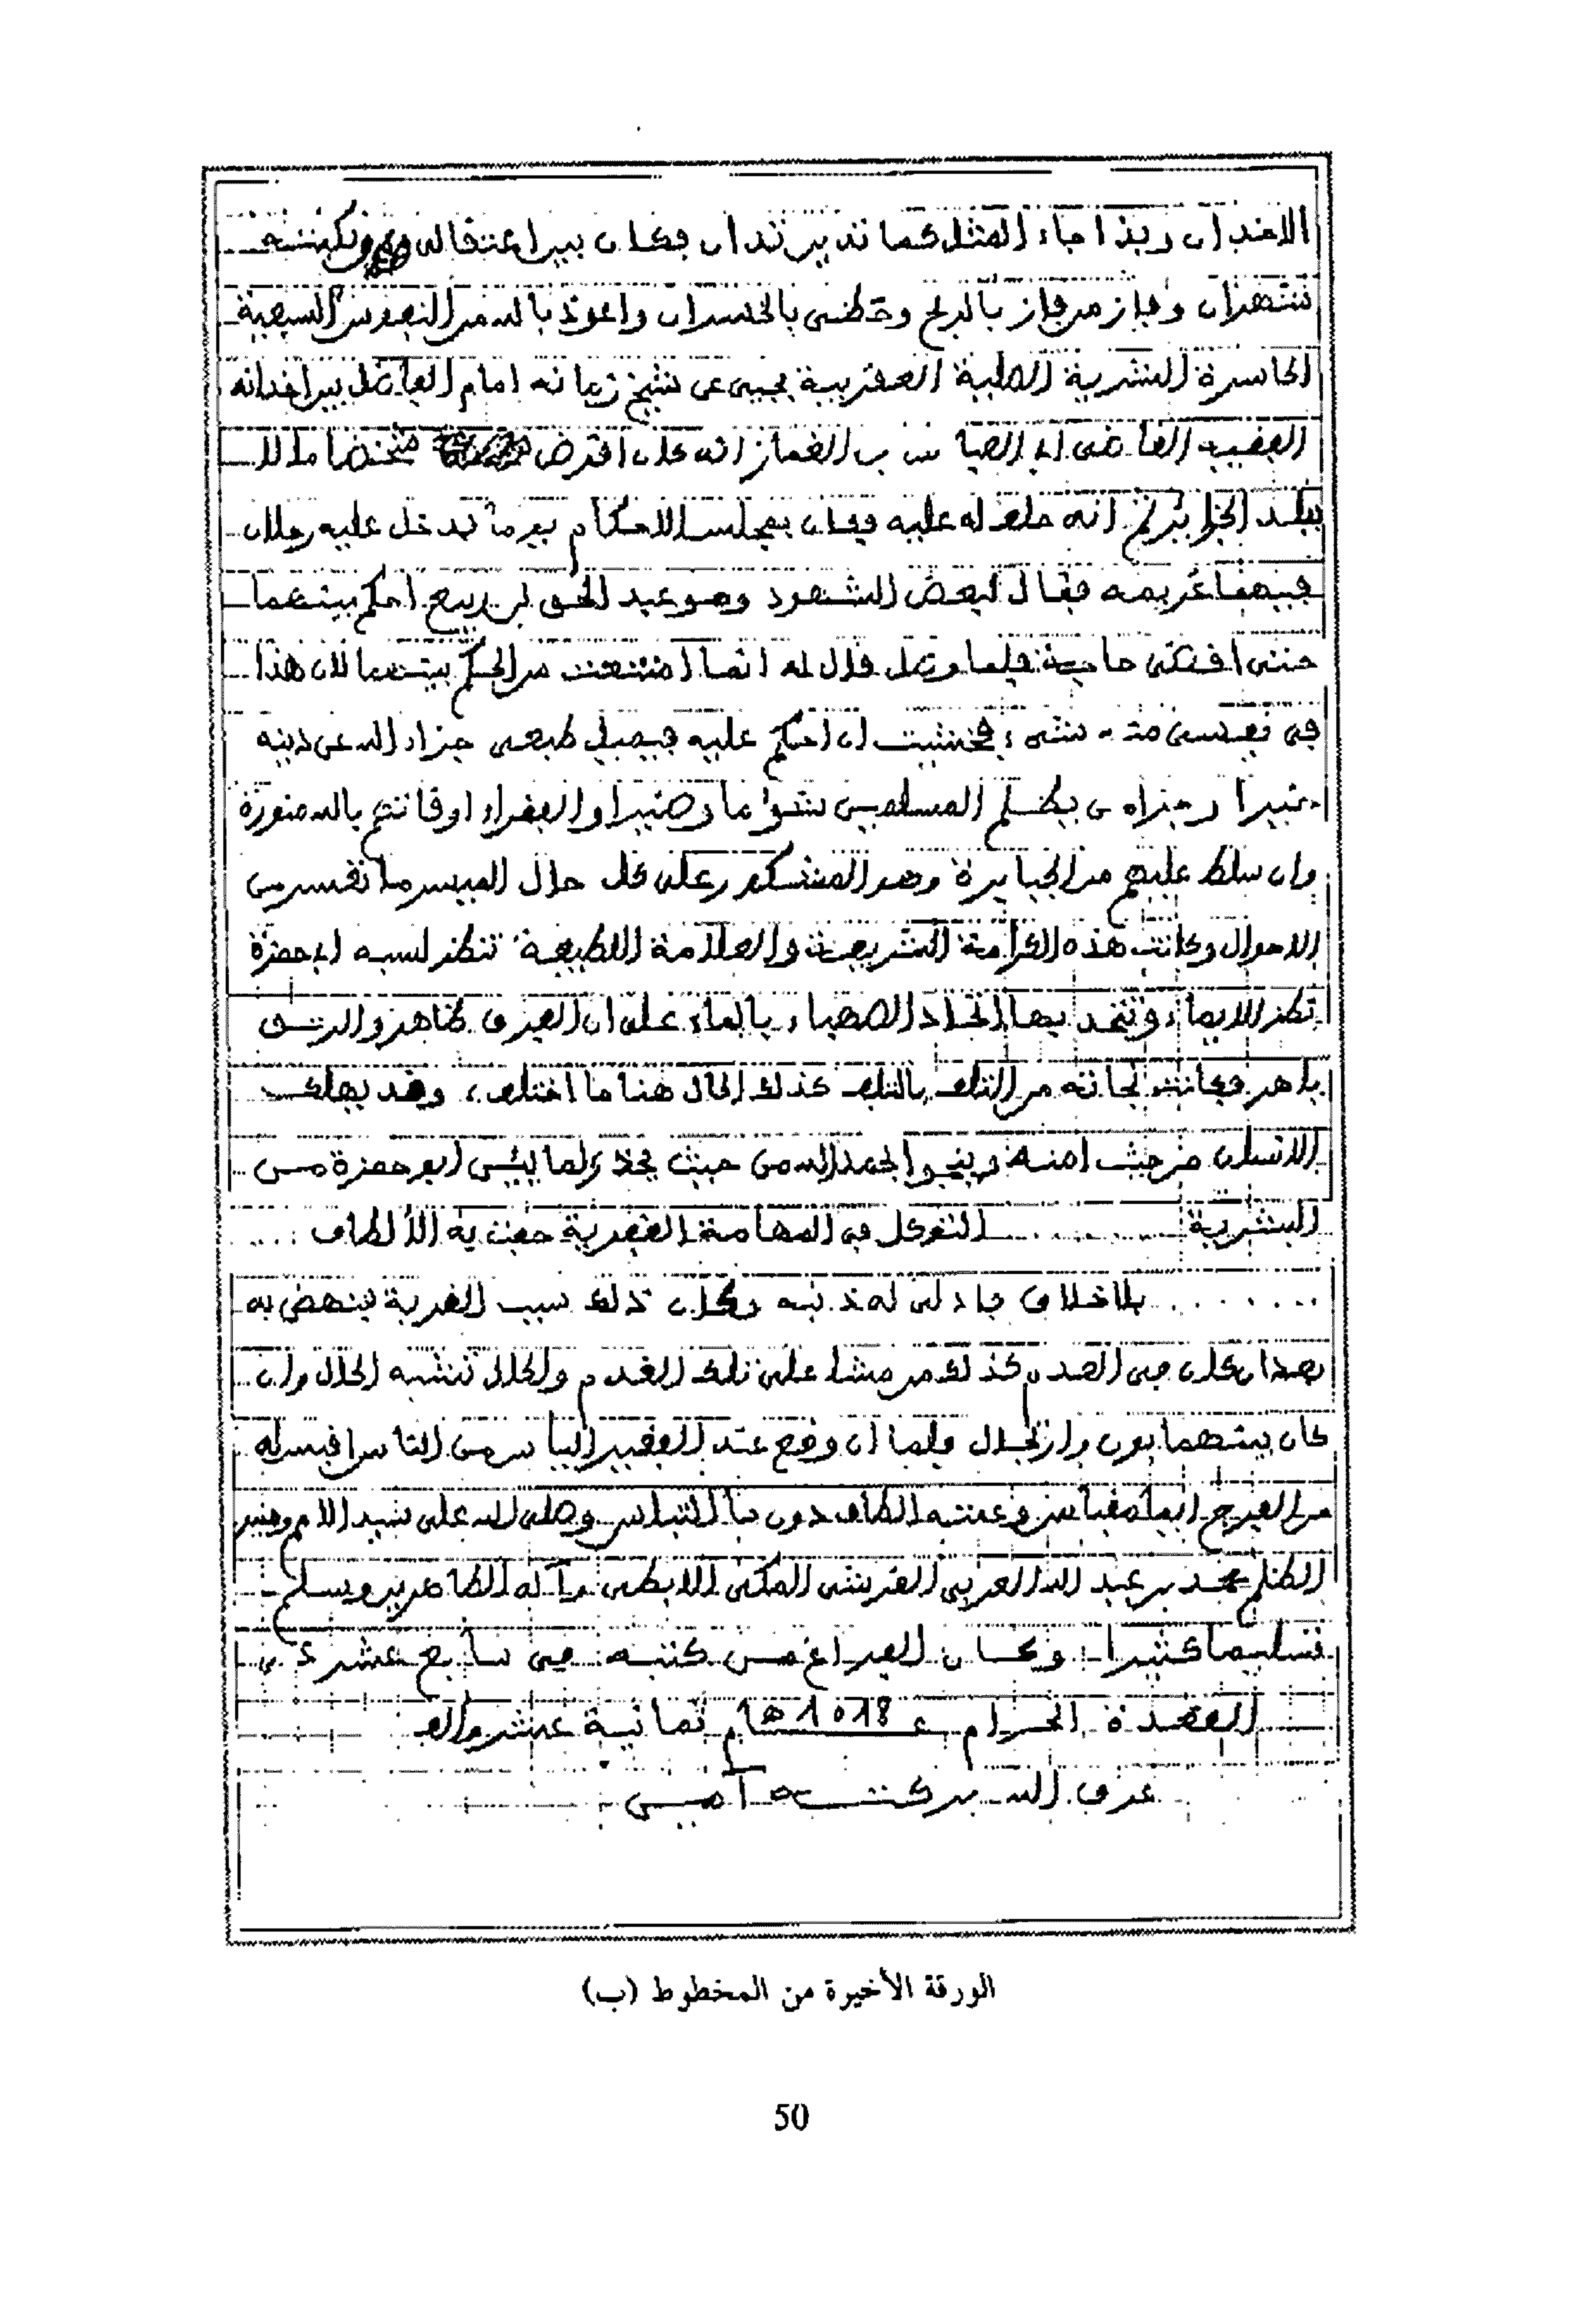 الاخدان وبذا جاء المثل كما تدين تدان فكان بين اعتقاله ونكبته
شهران وفاز من فاز بالربح وحظي بالخسران واعوذ بالله من النفوس السبعية
الحاسرة البشرية الكلبية العقربية يحيى عن شيخ زمانه امام الفاضل بين اخدانه
الفقيه القاضي ابي العباس بن الغماز انه كان اقرض شخصا مالا
ببلد الجزائر ثم انه حلف له عليه فكان بمجلس الاحكام يوما فدخل عليه رجلان
فيهما غريمه فقال لبعض الشهود وهو عبد الحق بن ربيع احكم بينهما
حتى اقضي حاجة فلما وصل قال له انما امتنعت من الحكم بينهما لان هذا
في نفسي منه شيء فخشيت ان احكم عليه فيميل طبعي جزاه الله عن دينه
خيرا وجزاه من يظلم المسلمين سوءا وضيرا والفقراء اوقاتهم بالله منورة
وان سلط عليهم من الجبابرة وهو المشكور على كل حال الميسر ما تعسر من
الاحوال وكانت هذه الكرامة الشريفة والعلامة اللطيفة تنظر لسبه ابي حمزة
نظر الايماء وتتحد بها اتحاد الصهباء بالماء على ان الفرق ظاهر والرتق
باهر فكانت نجاته من التلف بالتلف كذلك الحال هنا ما اختلف، وقد يهلك
الانسان من حيث امنه وينجو الحمد لله من حيث يحذر لما يئس ابو حمزة من
البشرية ............ التوكل في المهامة القفرية حفت به الالطاف ....
........ بالاخلاف فادلى له ذنبه وكان ذلك سبب القربة لينهض به
بعد ان كان في الصدم كذلك من مشا على تلك القدم والحال تشبه الحال وان
كان بينهما بون وارتجال فلما ان وقع عند الفقير الياس من الناس افيسله
من الفرج ايما مقياس وعمته الطاف دون ما التباس وصلى الله على سيد الامم
الظلم محمد بن عبد الله العربي القرشي المكي الابطحي وآله الطاهرين وسلم
تسليما كثيرا وكان الفراغ من كتبه في سابع عشر من
القعدة الحرام ع 1018 هام ثمانية عشر والف
عرف الله بركته آمين
الورقة الأخيرة من المخطوط (ب)
50